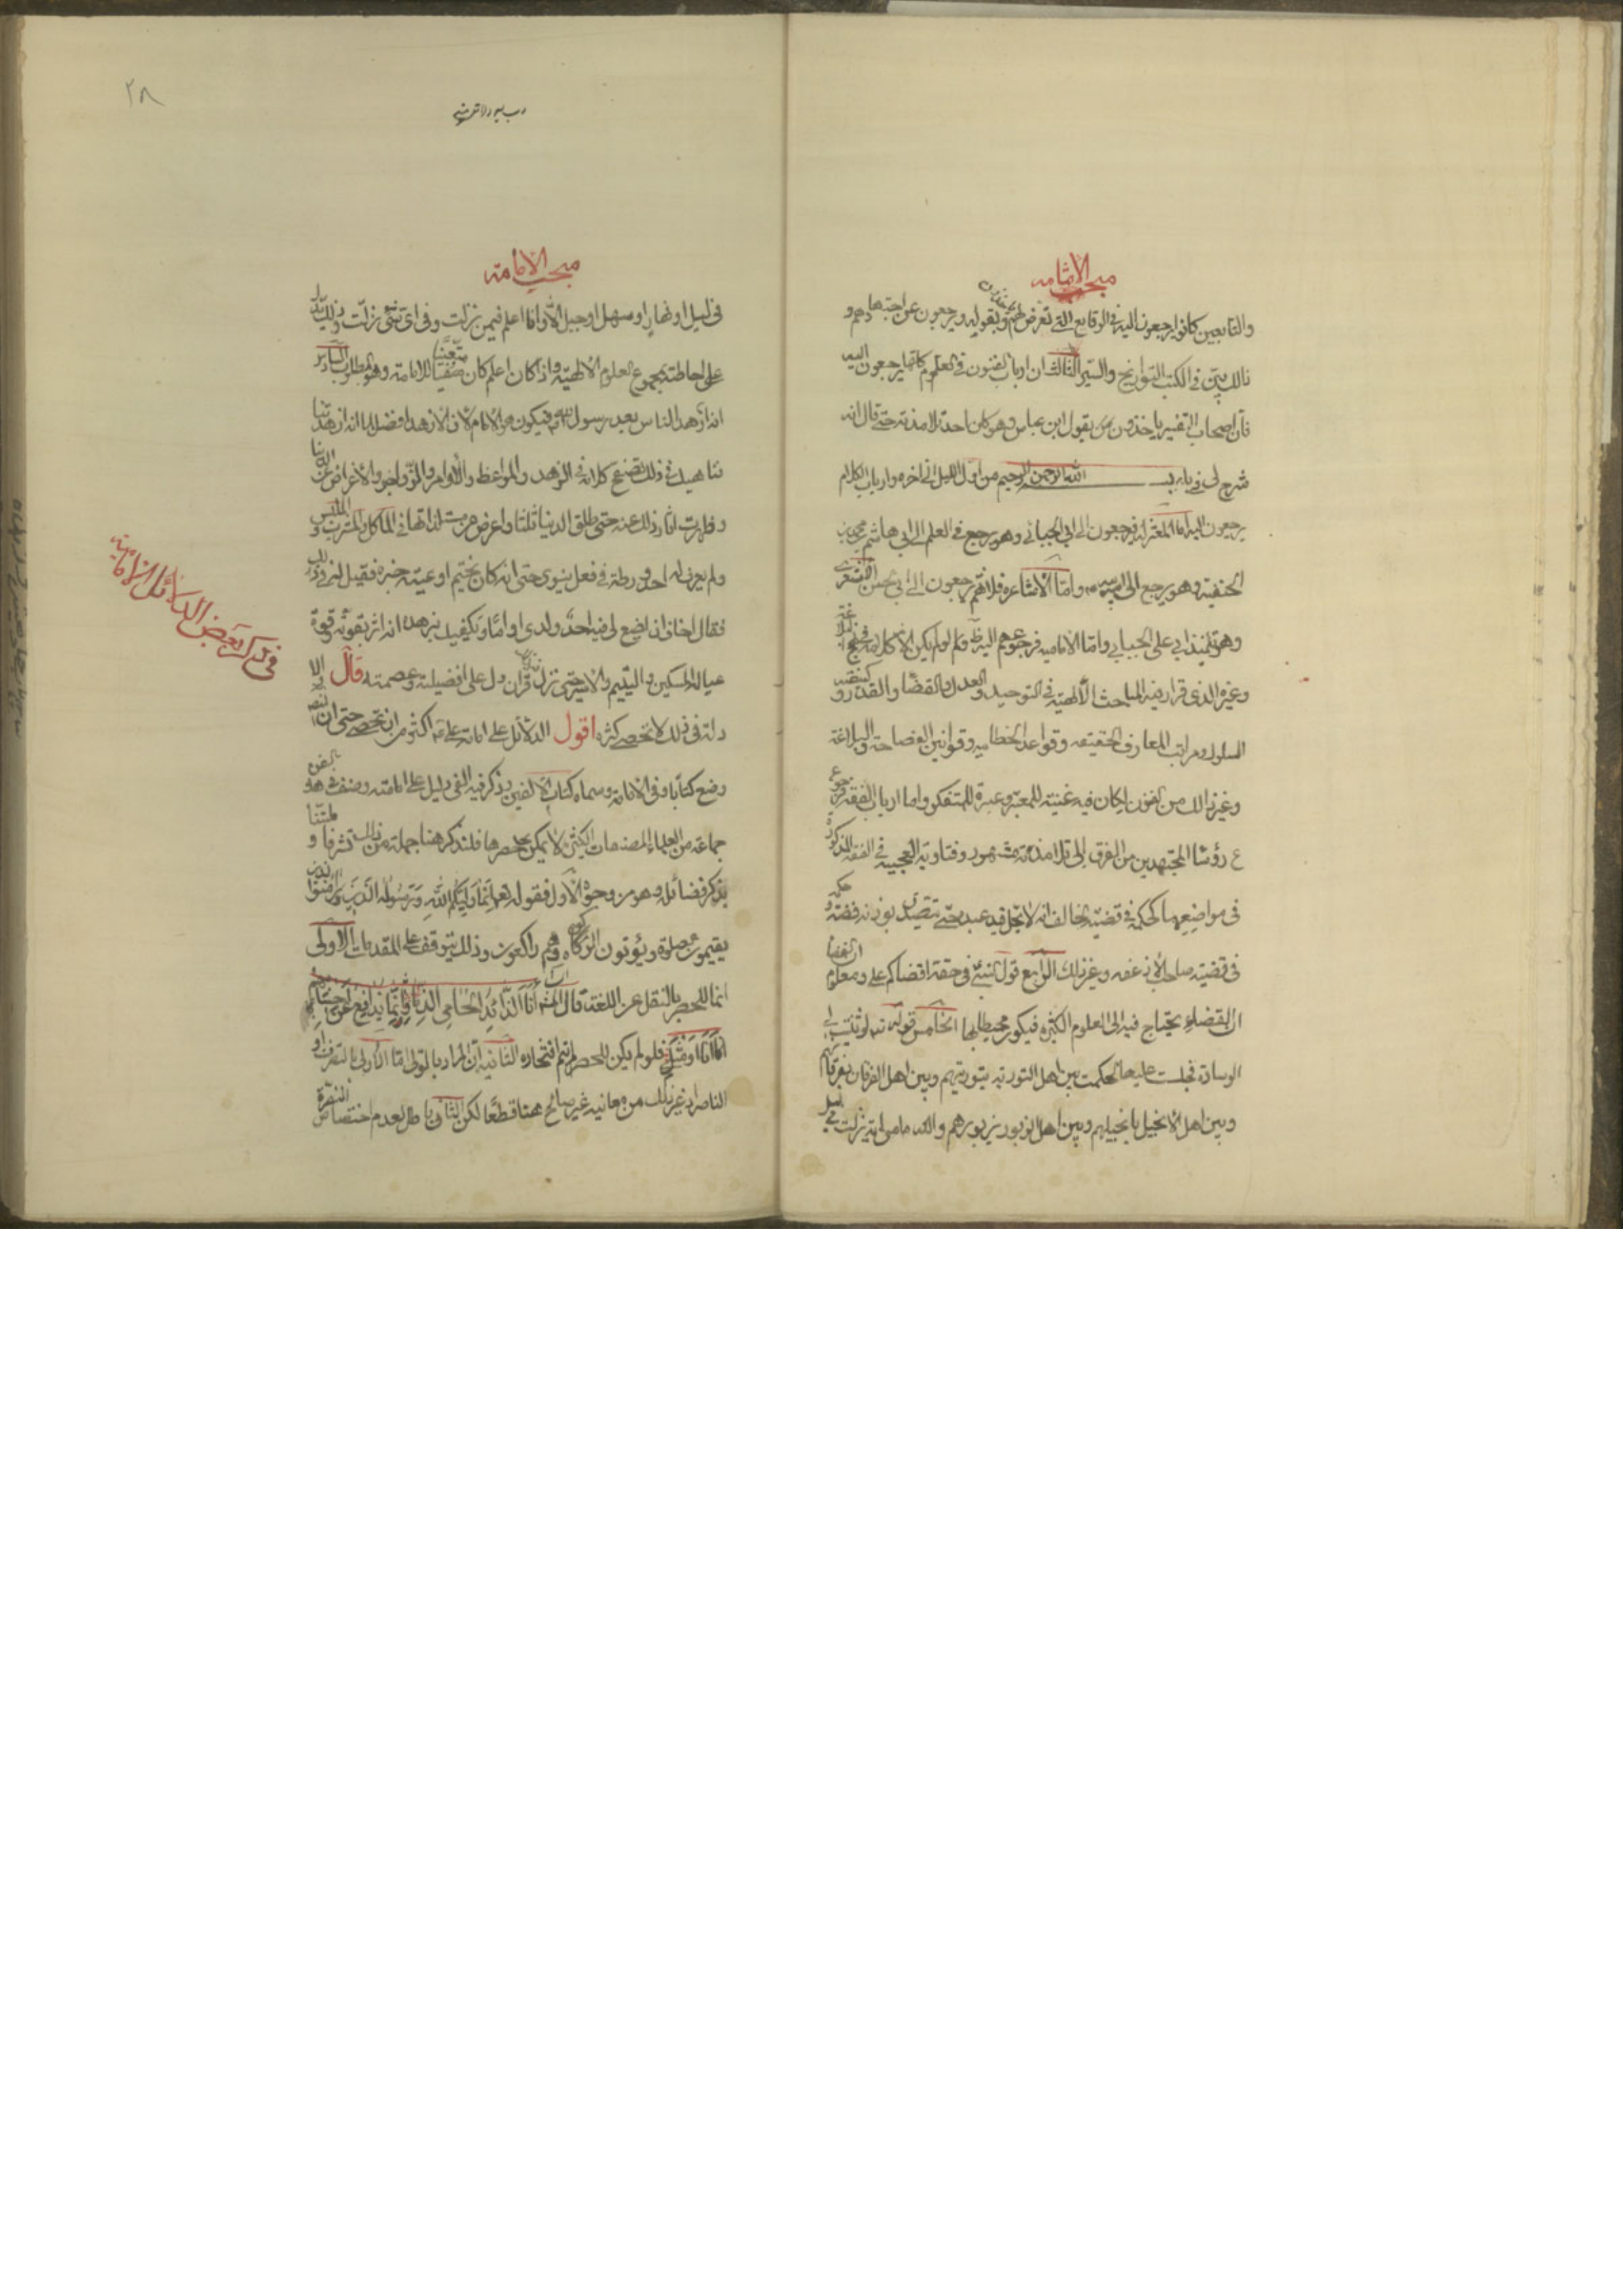 مبحث الامامه
والتابعين كانوا يرجعون اليه فى الوقايع التى تعرض لهم و بقوله ويرجعون عن اجتهادهم و
ذالك بيّن فى الكتب التواريخ والسّير الثالث ان ارباب الفنون فى العلوم كلها يرجعون اليه
فان اصحاب التفسير ياخذون بقول ابن عباس وهو كان احد تلامذته حتى قال انه
شرح لى فى باء بسم الله الرحمن الرحيم من اول الليل الى اخره وارباب الكلام
يرجعون اليه اما المعتزله فيرجعون الى ابى على الجبائى وهو يرجع فى العلم الى ابى هاشم محمد بن
الحنفيه وهو يرجع الى ابيه وامّا الاشاعره فلانهم يرجعون الى ابى الحسن الاشعرى
وهو تلميذ ابى على الجبايى وامّا الاماميه فرجوعهم اليه ظ ولو لم يكن الا كلامه فى نهج البلاغة
وغيره الذى قرر فيه المباحث الالهيّة فى التوحيد والعدل والقضا والقدر وكيفيه
السلوك ومراتب المعارف الحقيقه وقواعد الخطابيه وقوانين الفصاحة والبلاغة
وغير ذالك من الفنون لكان فيه غنيته للمعتبر وعبرة للمتفكر واما ارباب الفقه فرجوع
رؤسا المجتهدين من الفرق الى تلامذته مشهور وفتاويه العجيبه فى الفقه المذكورة
فى مواضعها كحكمه فى قضيّة الحالف انه لا يحل قيد عبده حتى يتصدق بوزنه فضة و حكمه
فى قضيته صاحب الارغفه وغير ذلك الرابع قول النبى فى حقه اقضاكم على ومعلوم ان القضا
ان القضاء يحتاج فيه الى العلوم الكثيره فيكون محيطا بها الخامس قوله لو ثنيت لى
الوسادة فجلست عليها لحكمت بين اهل التورية بتوريتهم وبين اهل الفرقان بفرقانهم
وبين اهل الانجيل بانجيلهم وبين اهل الزبور بزبورهم والله ما من اية نزلت
٢٨
مبحث الامامته
فى ليل او نهار او سهل او جبل الا وانا اعلم فيمن نزلت وفى اى شئ نزلت وذلك يدل
على احاطته بجموع العلوم الالهيّة واذا كان اعلم كان متعينا للامامته وهو المطلوب السادس
انه ازهد الناس بعد رسول الله فيكون هو الامام لان الازهد افضل اما انه ازهد
فناهيك فى ذلك تصفح كلامه فى الزهد والمواعظ والاوامر والزواجر والاعراض عن الدنيا
وظهرت اثار ذلك عنه حتى طلق الدنيا ثلثا واعرض عن مستلذاتها فى المأكل والمشرب والملبس
ولم يعرف له احد ورطة فى فعل دنيوى حتى انه كان يختم اوعيته خبزه فقيل له فى ذلك
فقال اخاف ان يضع لى فيه احد ولدى اداما ويكفيك بزهده انه اثر بقوته وقوة
عياله المسكين واليتيم والاسير حتى نزل قران دل على افضيلته وعصمته قال والا
دلة فى ذلك لا تحصى كثره اقول الدلائل على امامة على اكثر من ان تحصى حتى ان المصنف
وضع كتابا فى الامامة وسماه كتاب الالفين وذكر فيه الفى دليل على امامته وصنف فى هذا الفن
جماعة من العلماء المصنفات الكثيرة لا يمكن حصرها فلنذكر هنا جملة من ذالك تشرفا و تيمنا
بذكر فضائله وهو من وجوه الاول فقوله تع انما وليكم الله ورسوله الذين امنوا الذين
يقيمون الصلوة ويؤتون الزكاه وهم راكعون وذلك يتوقف على المقدمات الاولى
انما للحصر بالنقل عن اللغة قال الشاعر أنا الذائد الحامى الذمار وانما يدافع عن احسابهم
انا او مثلى فلو لم يكن للحصر لم يتم افتخاره الثانيه ان المراد بالولى اما الاولى بالتصرف او
الناصر اذ غير ذلك من معانيه غير صالح هنا قطعا لكن الثانى باطل لعدم اختصاص النصرة
فى ذكر بعض الدلائل الامامية